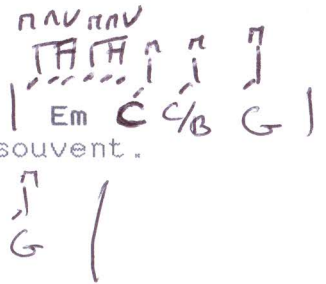 | Em C C/B G |
souvent.
G |